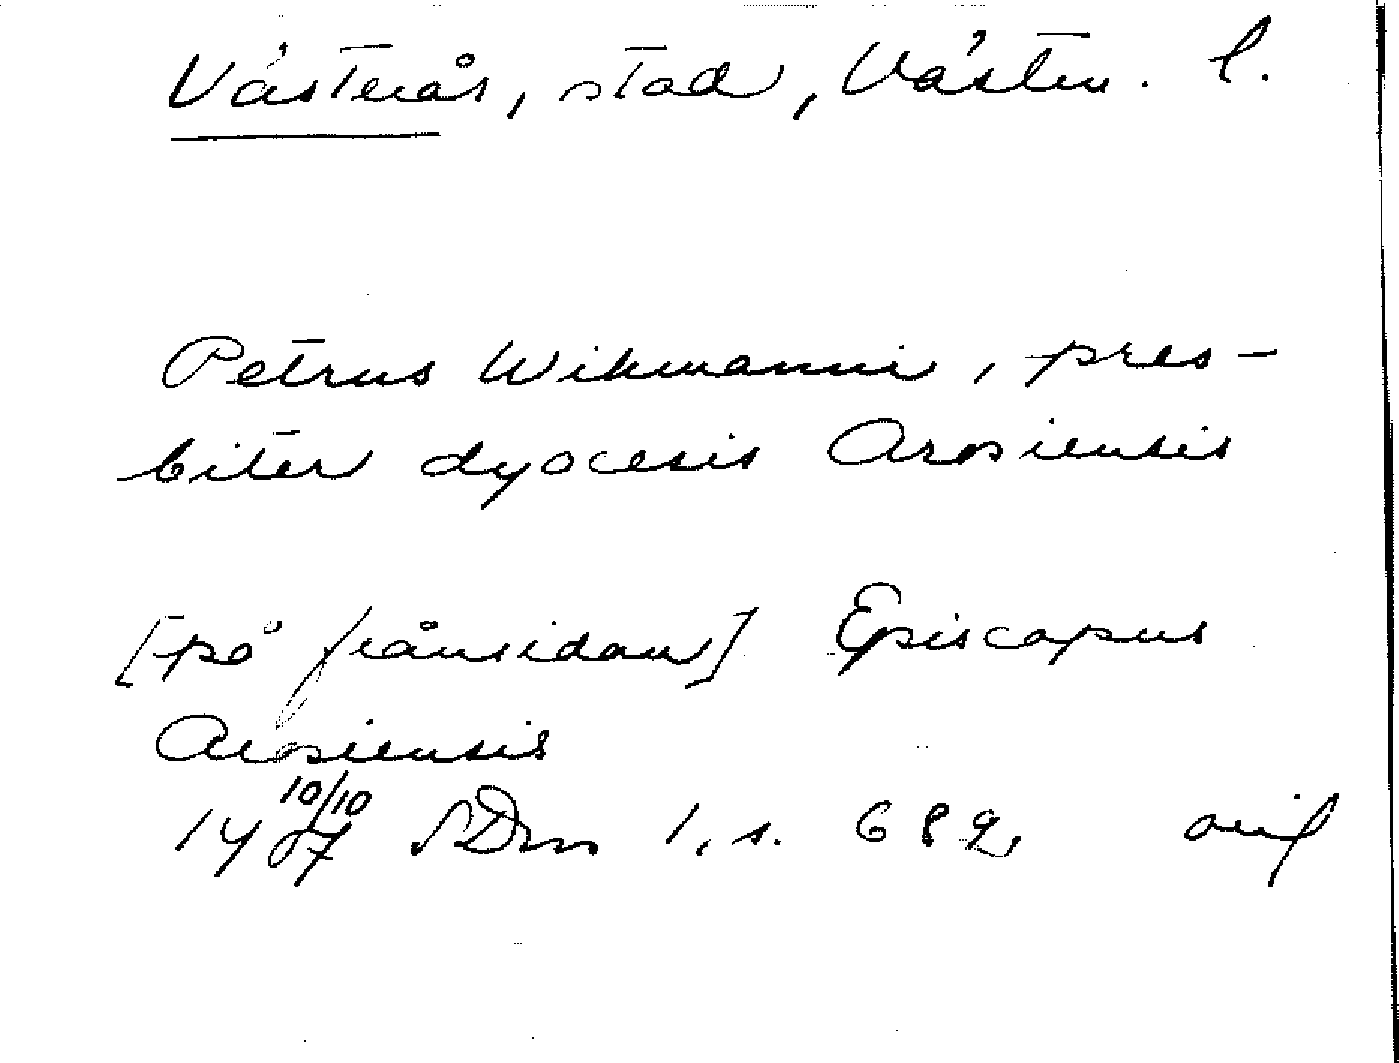 Västerås, stad, Västm. l.
Petrus Wikmanni, pres-
biter dyocesis Arosiensis
[på frånsidan] Episcopus
Arosiensis
10/10
1407 SDns 1, s. 689, orig